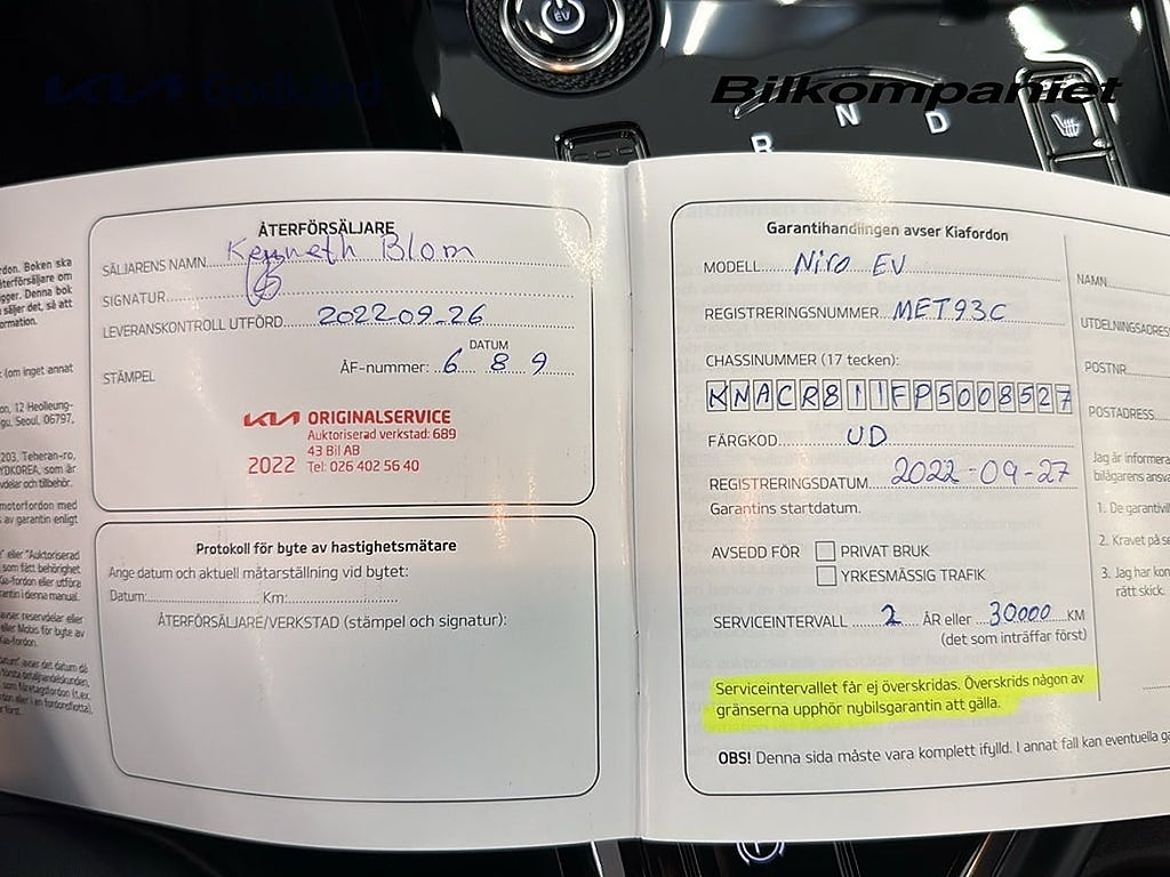 KIA Godkänd
Bilkompaniet
EV
R N D
rdon. Boken ska
återförsäljare om
ligger. Denna bok
säljer det, så att
ormation.
(om inget annat
on, 12 Heolleung-
gu, Seoul, 06797,
203, Teheran-ro,
YDKOREA, som är
vdelar och tillbehör.
motorfordon med
av garantin enligt
ÅTERFÖRSÄLJARE
SÄLJARENS NAMN Kenneth Blom
SIGNATUR
LEVERANSKONTROLL UTFÖRD 2022-09-26
DATUM
STÄMPEL
ÅF-nummer: 6 8 9
KIA ORIGINALSERVICE
Auktoriserad verkstad: 689
43 Bil AB
2022 Tel: 026 402 56 40
Protokoll för byte av hastighetsmätare
Ange datum och aktuell mätarställning vid bytet:
Datum: Km:
ÅTERFÖRSÄLJARE/VERKSTAD (stämpel och signatur):
Garantihandlingen avser Kiafordon
MODELL Niro EV
REGISTRERINGSNUMMER MET93C
CHASSINUMMER (17 tecken):
KNACR811FP5008527
FÄRGKOD UD
REGISTRERINGSDATUM 2022-09-27
Garantins startdatum.
AVSEDD FÖR PRIVAT BRUK
YRKESMÄSSIG TRAFIK
SERVICEINTERVALL 2 ÅR eller 30000 KM
(det som inträffar först)
Serviceintervallet får ej överskridas. Överskrids någon av
gränserna upphör nybilsgarantin att gälla.
OBS! Denna sida måste vara komplett ifylld. I annat fall kan eventuella ga
NAMN
UTDELNINGSADRES
POSTNR
POSTADRESS
Jag är informera
bilägarens ansva
1. De garantivil
2. Kravet på se
3. Jag har kon
rätt skick.